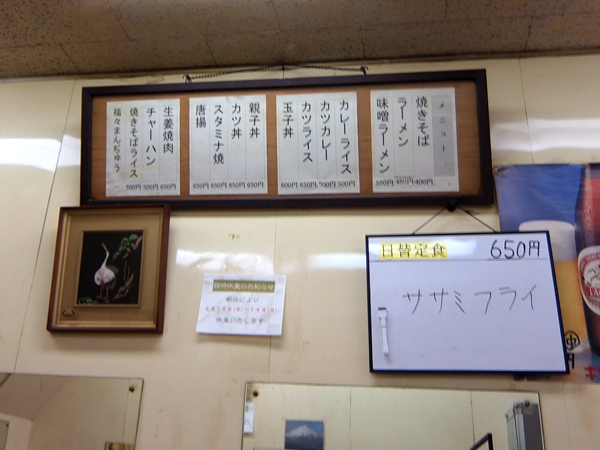 メニュー
焼きそば
ラーメン
味噌ラーメン
550円 450円 400円
カレーライス
カツカレー
カツライス
玉子丼
600円 600円 700円 500円
親子丼
カツ丼
スタミナ焼
唐揚
650円 650円 650円 650円
生姜焼肉
チャーハン
焼きそばライス
福々まんぢゅう
500円 500円 650円
日替定食 650円
ササミフライ
臨時休業のお知らせ
都合により
休業いたします